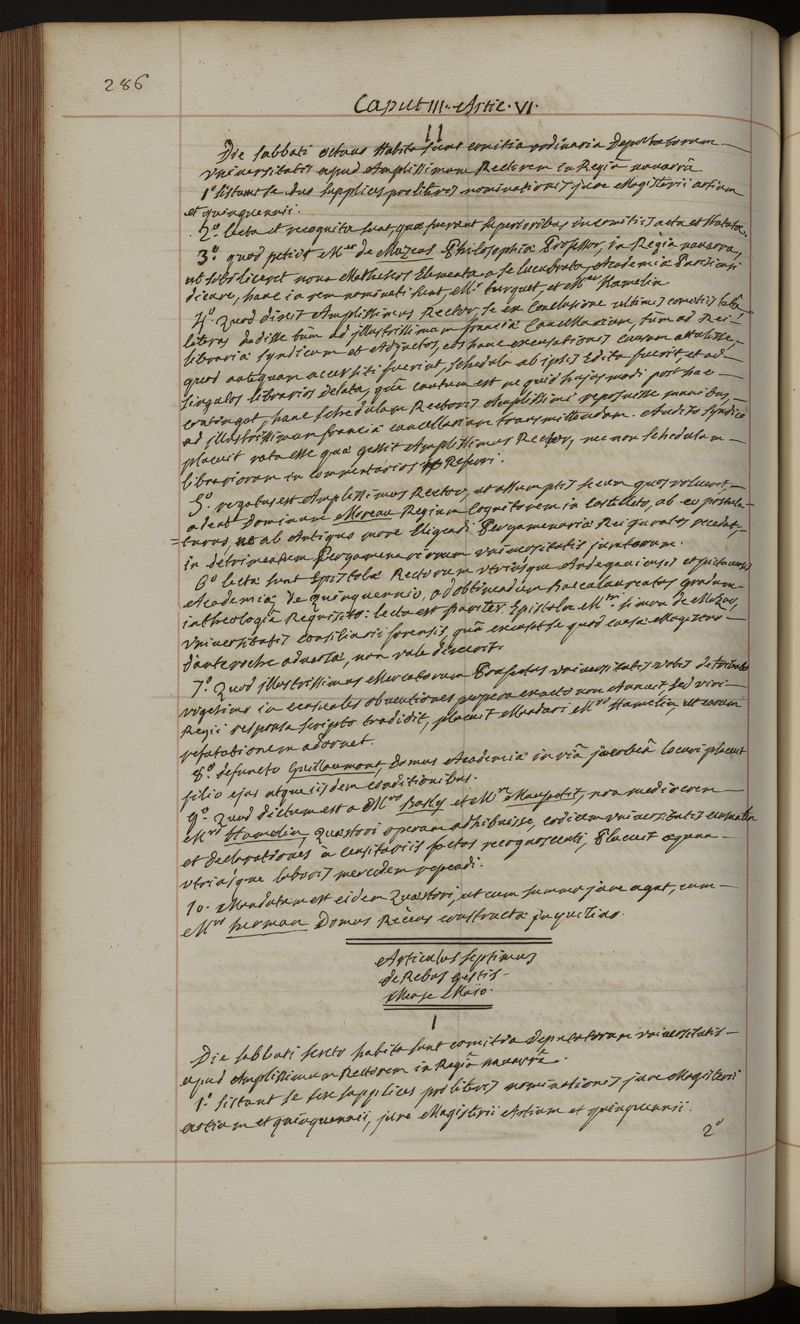 286
Caput III. Artic. VI.
II
Die sabbati octavo habita sunt comitia ordinaria Deputatorum
Universitatis apud Amplissimum Rectorem in Regiâ navarrâ
1º sistunt se duo supplices pro litteris nominationis jure Magisterii artium
et quinquennii.
2º. lecta et recognita sunt, quæ fuerunt superioribus in comitiis acta et statuta.
3º. quod petiit Mer de Mazeas Philosophiæ Professor, in Regia navarra,
ut sibi liceret nova Matheseos Elementa a se lucubrata, Academiæ Parisiensi
dicare, hanc in rem nominati sunt, Mr turquet, et Mer hamelin
4º. Quod dixit Amplissimus Rector, se ex Conclusione ultimis comitiis latâ
literas dedisse tùm ad illustrissimum franciæ Cancellarium, tùm ad Rei
librariæ syndicum et Adjunctos, eos hanc excusationis causam attulisse,
quod antequam accersiti fuerint, schedula ab ipsis edita fuerit, et ad
singulos librarios delata, quâ cautum est ne quid hujus modi post hac
contingat, hanc schedulam Rectoris Amplissimi reposuisse manibus,
ad illustrissimum franciæ cancellarium transmittendam. Audito syndico
placuit rata esse quæ gessit Amplissimus Rector, nec non schedulam
librariorum in commentarios Referri.
5º. rogatus est Amplissimus Rector, ut assumptis secum quos voluerit,
adeat Dominum Moreau Regium Cognitorem in Castelleto, ab eo postula-
turus, ut ab Antiquo more Eligendi Pergamenariæ Rei juratos recedat,
in detrimentum Pergamenariorum universitatis juratorum.
6º lectæ sunt Epistolæ Rectorum utriusque Andegavensis et pictaviensis
Academiæ de quinquennio, ad obtinendum Baccalaureatus gradum
in theologiâ Requisito: lecta est pariter Epistola Mri simon de Mozac,
Universitatis consiliarii forensis, quâ excusat se quod causa Magistro
danteroche adversa, non vale dixerit.
7º. Quod illustrissimus Mercatorum Præfectus universitatis votis de tributo
vigesimo in censuales obventiones perperam exacto non Annuit sed viri
Regii responsa scripto tradidit, placuit Mandari Mro Hamelin, ut eorum
refutationem adornet.
8º. defuncto Guillaumont, domus Academiæ in viâ jacobeâ locari placuit
filio ejus atque iisdem conditionibus.
9º. Quod dictum est a Mro Basly et Mro Maupetit, non mediocrem
Mrum Hamelin, Quæstori operam adhibuisse, codicem universitatis
et declarationes à censitariis factas recognoscenti, Placuit æquam
utriusque laboris mercedem rependi.
10. Mandatum est eidem Quæstori, ut cum summo jure agat, cum
Mro herman Domus Recens constructæ inquilino.
Articulus septimus
de Rebus gestis
Mense Maïo.
I
Die sabbati sexto habita sunt comitia Deputatorum universitatis
apud Amplissimum Rectorem in Regiâ navarrâ.
1º. sistunt se sex supplices pro literis nominationis jure Magisterii
artium et quinquennii, jure Magisterii Artium et quinquennii.
2º